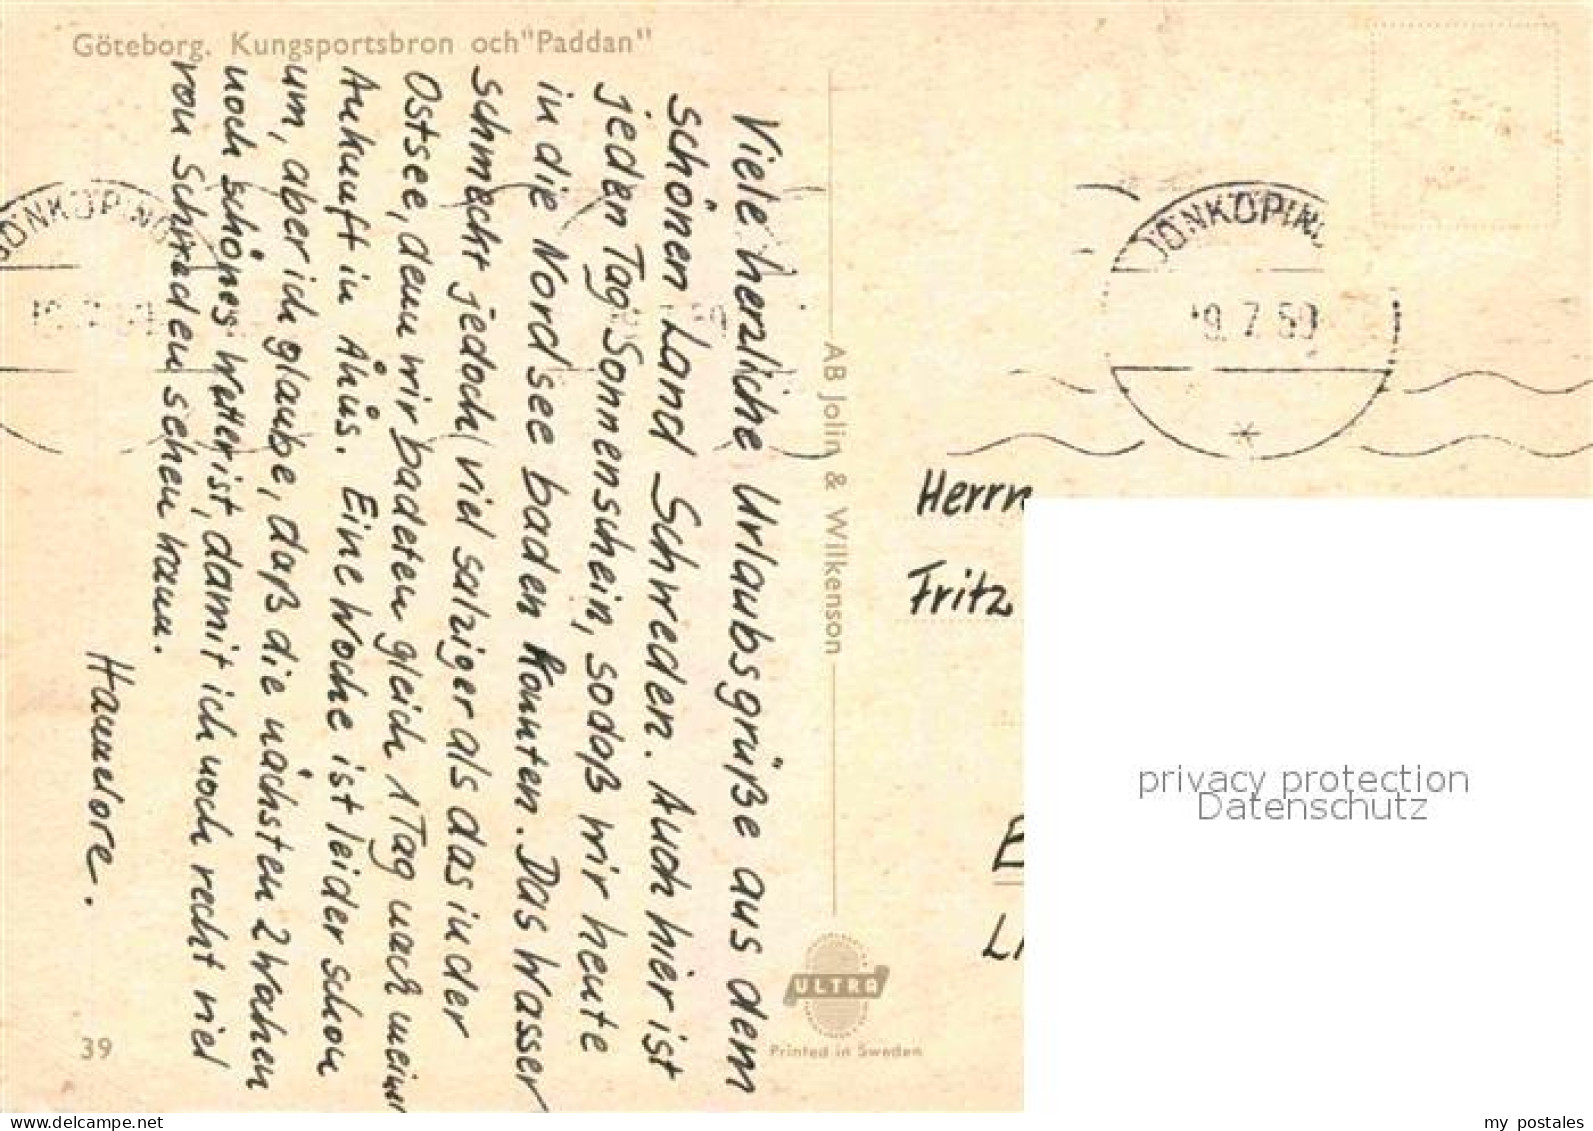 Göteborg. Kungsportsbron och "Paddan"
Viele herzliche Urlaubsgrüße aus dem
schönen Land Schweden. Auch hier ist
jeden Tag Sonnenschein, sodaß wir heute
in die Nordsee baden konnten. Das Wasser
schmeckt jedoch viel salziger als das in der
Ostsee, denn wir badeten gleich 1 Tag nach meiner
Ankunft in Åhus. Eine Woche ist leider schon
um, aber ich glaube, daß die nächsten 2 Wochen
noch schönes Wetter ist, damit ich noch recht viel
von Schweden sehen kann.
Hannelore.
39
AB Jolin & Wilkenson
ULTRA
Printed in Sweden
JÖNKÖPING
JÖNKÖPING
9. 7 60
Herrn
Fritz
privacy protection
Datenschutz
www.delcampe.net
my_postales